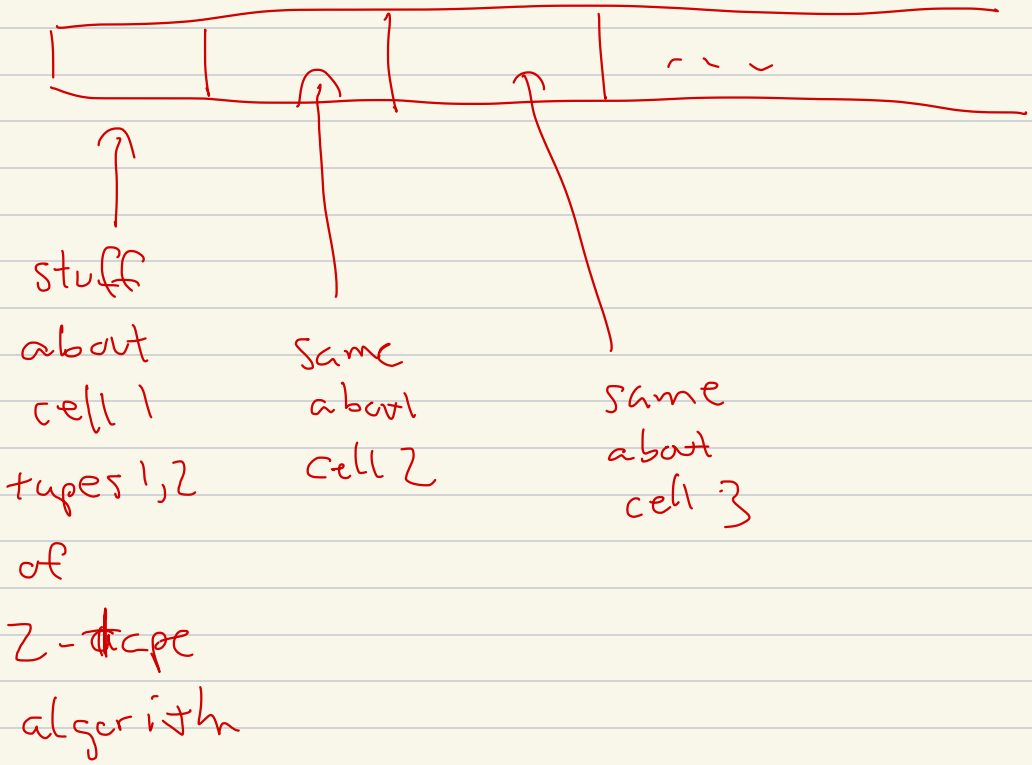 ...
stuff
about
cell 1
types 1,2
of
2-tape
algorithm
same
about
cell 2
same
about
cell 3